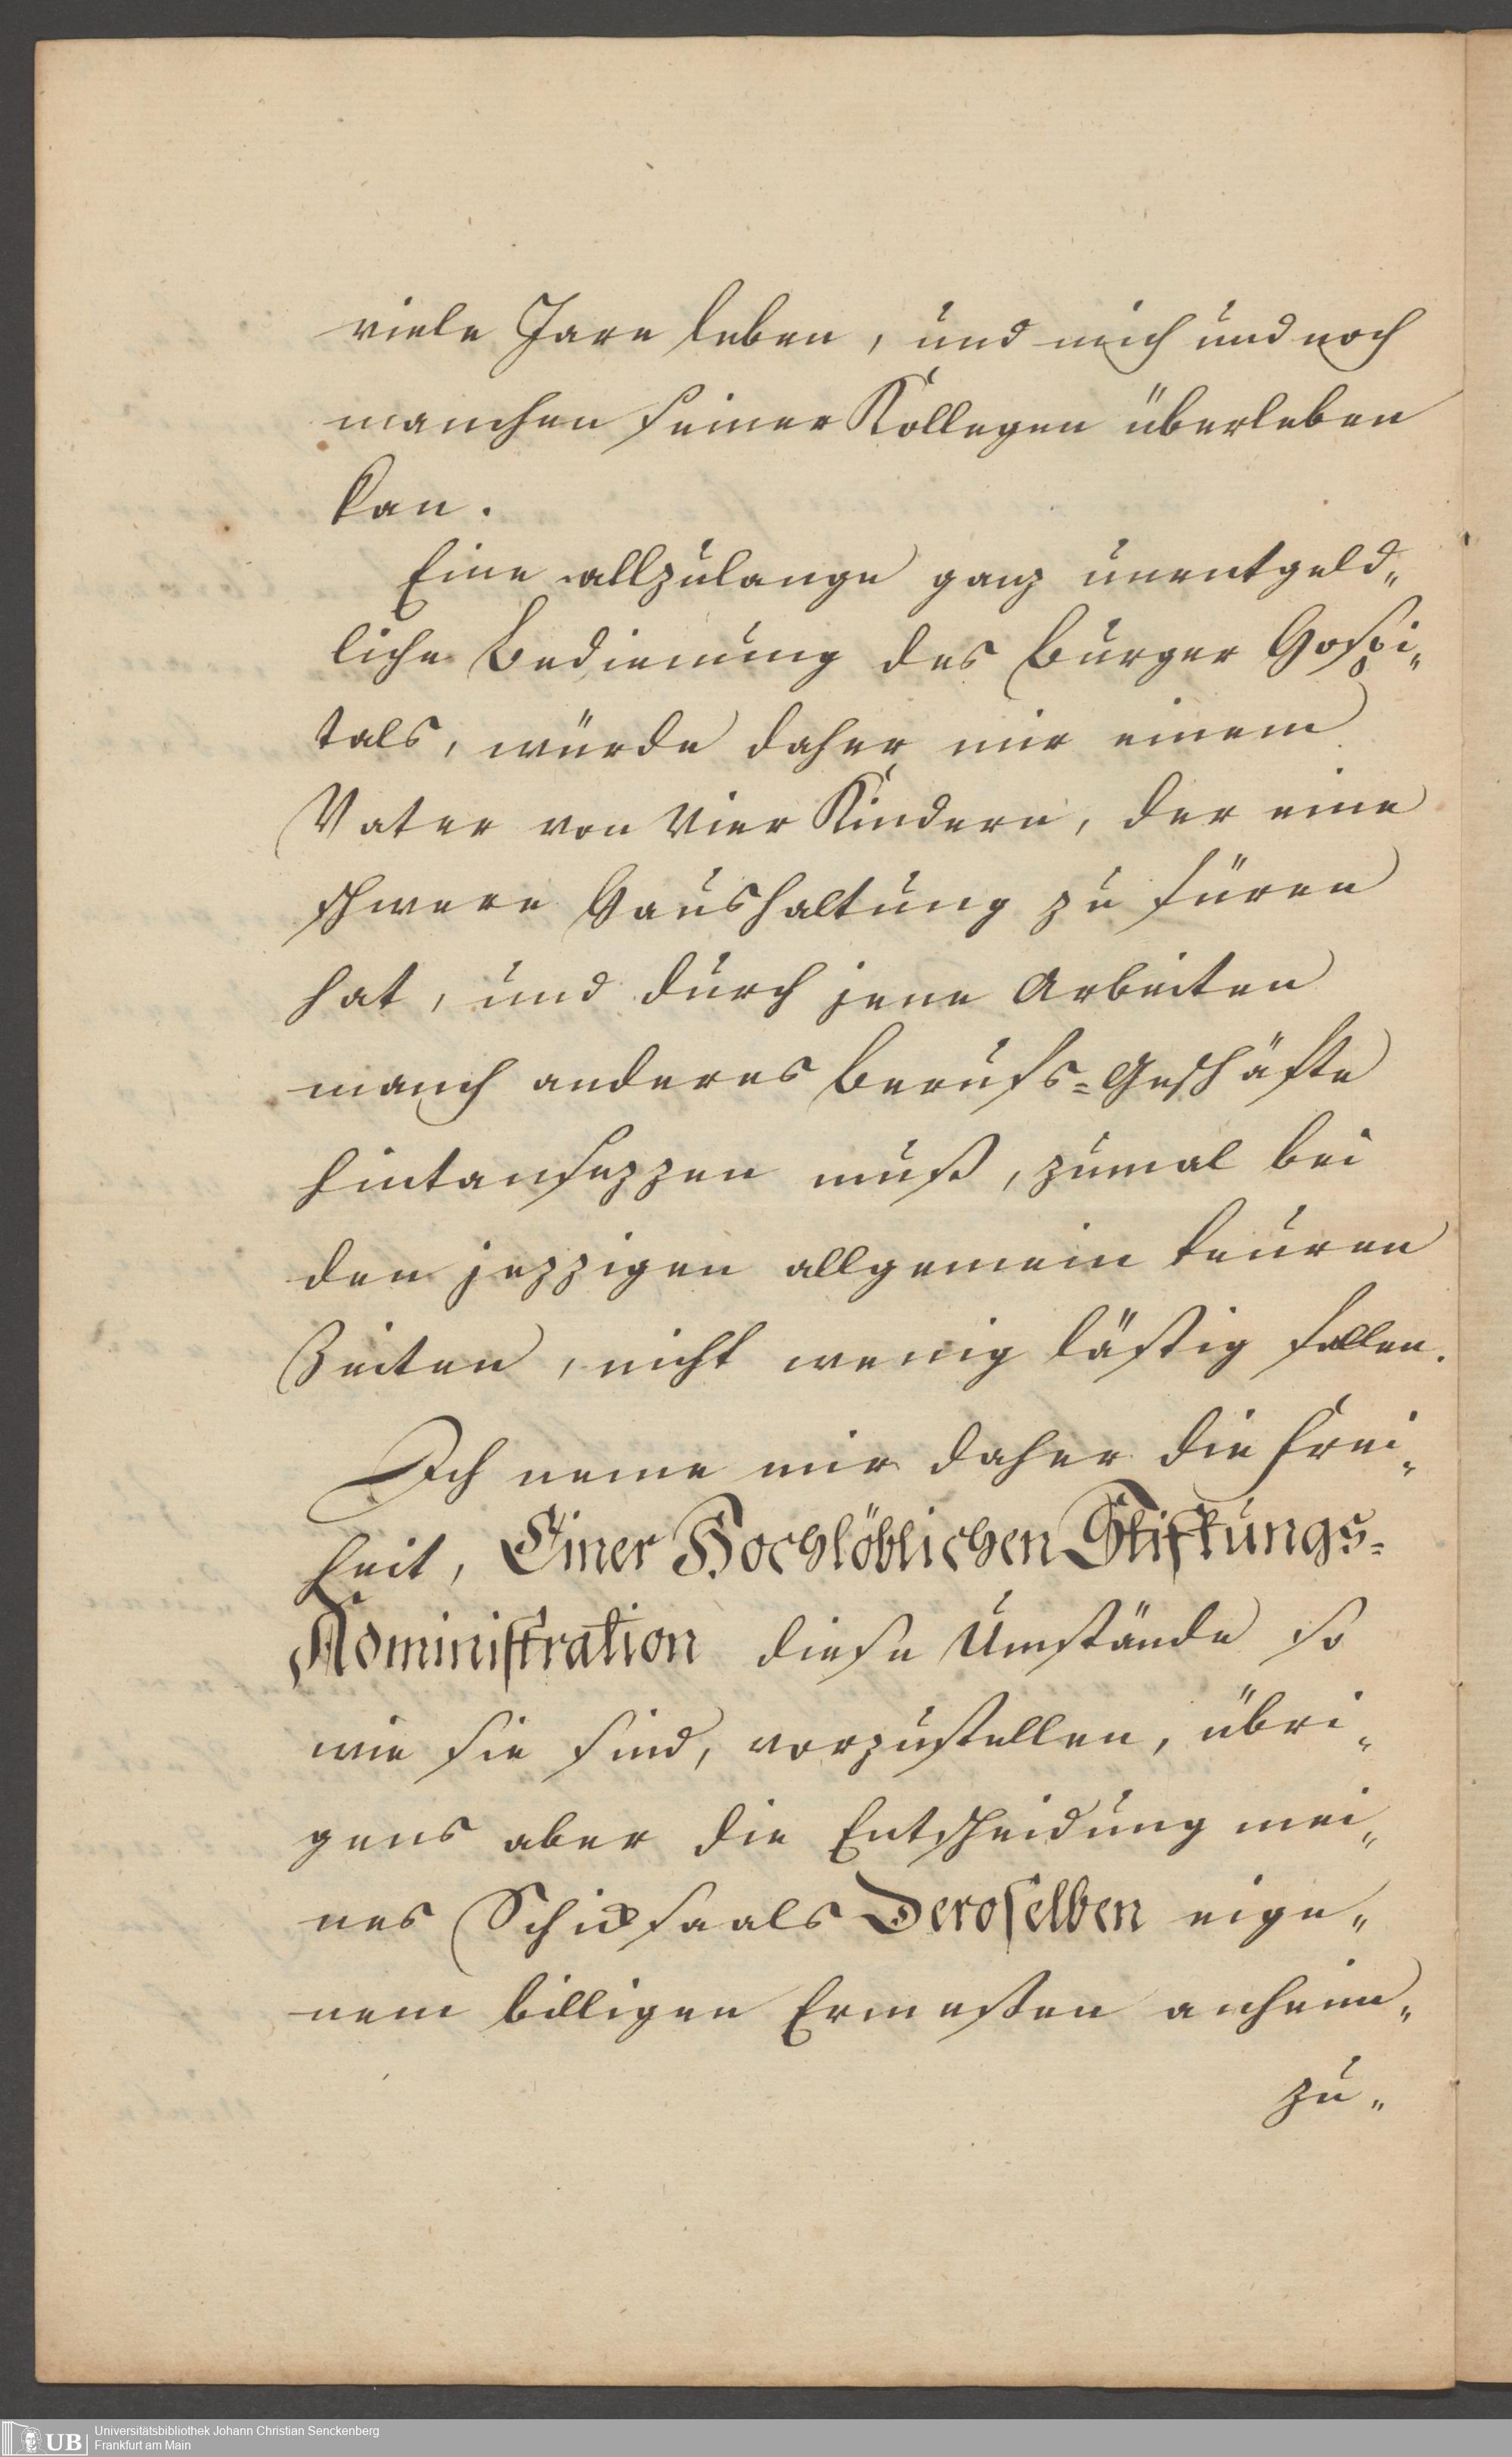 viele Jare leben, und mich und noch
manchen seiner Kollegen überleben
kan.
Eine allzulange ganz unentgeld„
liche Bedienung des Burger Hospi„
tals, würde daher mir einem
Vater von vier Kindern, der eine
schwere Haushaltung zu füren
hat, und durch jene Arbeiten
manch anderes Berufs=Geschäfte
hintansezzen muß, zumal bei
den jezzigen allgemein teuren
Zeiten, nicht wenig lästig fallen.
Ich neme mir daher die Frei„
heit, Einer Hochlöblichen Stiftungs=
Administration diese Umstände so
wie sie sind, vorzustellen, übri„
gens aber die Entscheidung mei„
nes Schicksaals Deroselben eige„
nem billigen Ermeßen anheim„
zu„
UB
Universitätsbibliothek Johann Christian Senckenberg
Frankfurt am Main